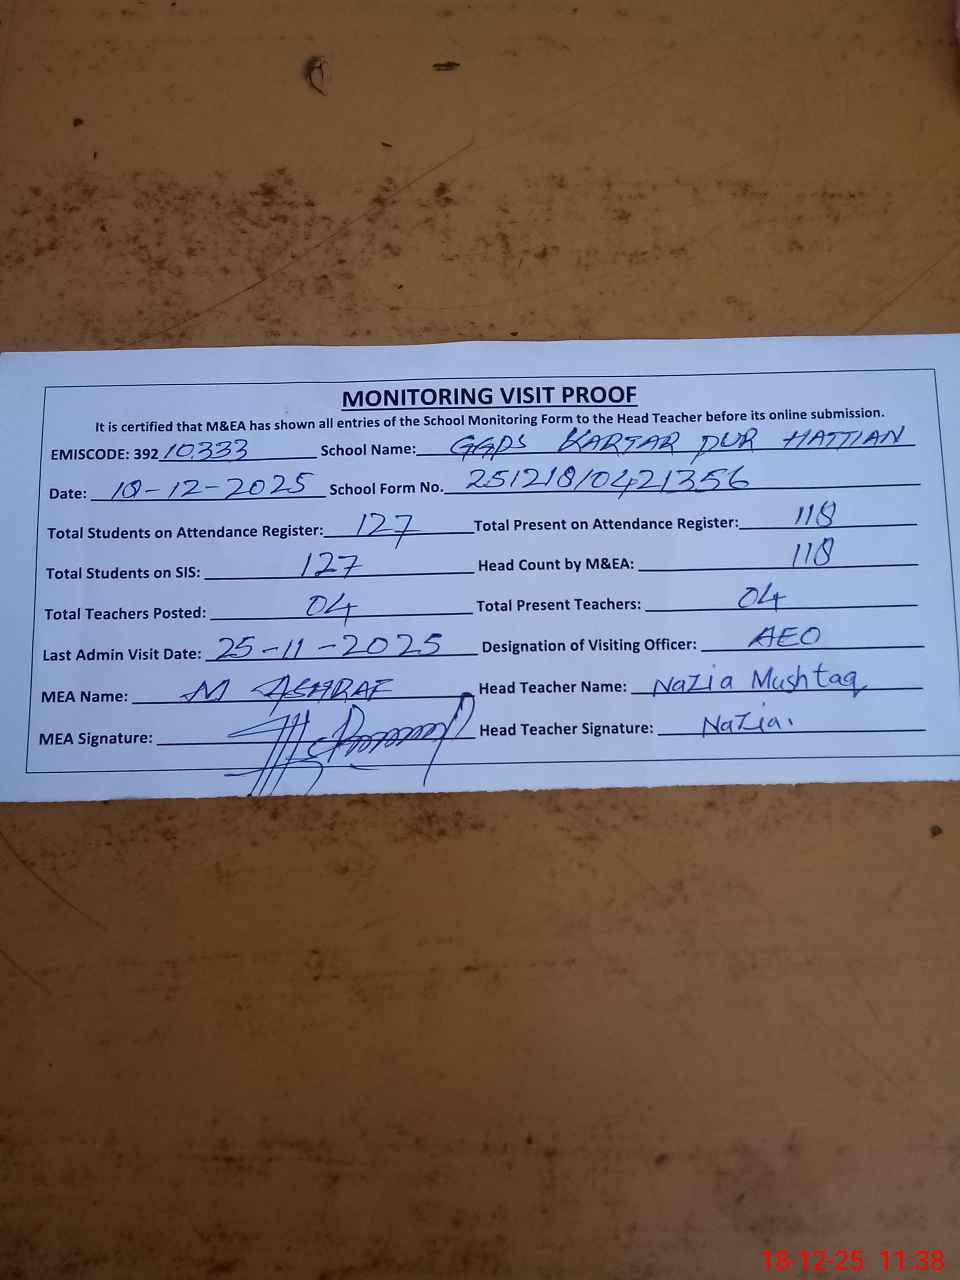 MONITORING VISIT PROOF
It is certified that M&EA has shown all entries of the School Monitoring Form to the Head Teacher before its online submission.
EMISCODE: 392 10333 School Name: GGPS KARTAR PUR HATTIAN
Date: 18-12-2025 School Form No. 25121810421356
Total Students on Attendance Register: 127 Total Present on Attendance Register: 118
Total Students on SIS: 127 Head Count by M&EA: 118
Total Teachers Posted: 04 Total Present Teachers: 04
Last Admin Visit Date: 25-11-2025 Designation of Visiting Officer: AEO
MEA Name: M ASHRAF Head Teacher Name: Nazia Mushtaq
MEA Signature: Head Teacher Signature: Nazia.
18-12-25 11:38